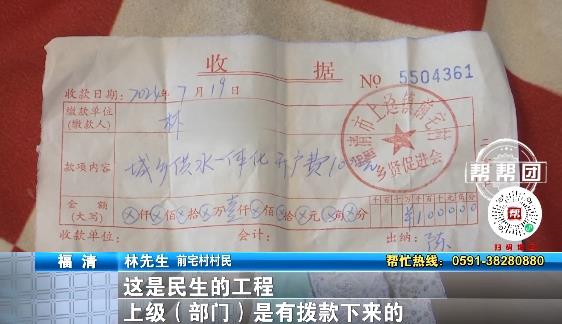 收 据
No 5504361
收款日期: 2024年7月19日
缴款单位
(缴款人)
林
款项内容 城乡供水一体化开户费
乡贤促进会
金 额
(大写)
仟 佰 拾 万 壹仟 佰 拾 元 角 分
¥100000
收款单位: 会计: 出纳: 陈
帮帮团
帮
扫码
福清 林先生 前宅村村民 帮忙热线: 0591-38280880
这是民生的工程
上级(部门)是有拨款下来的